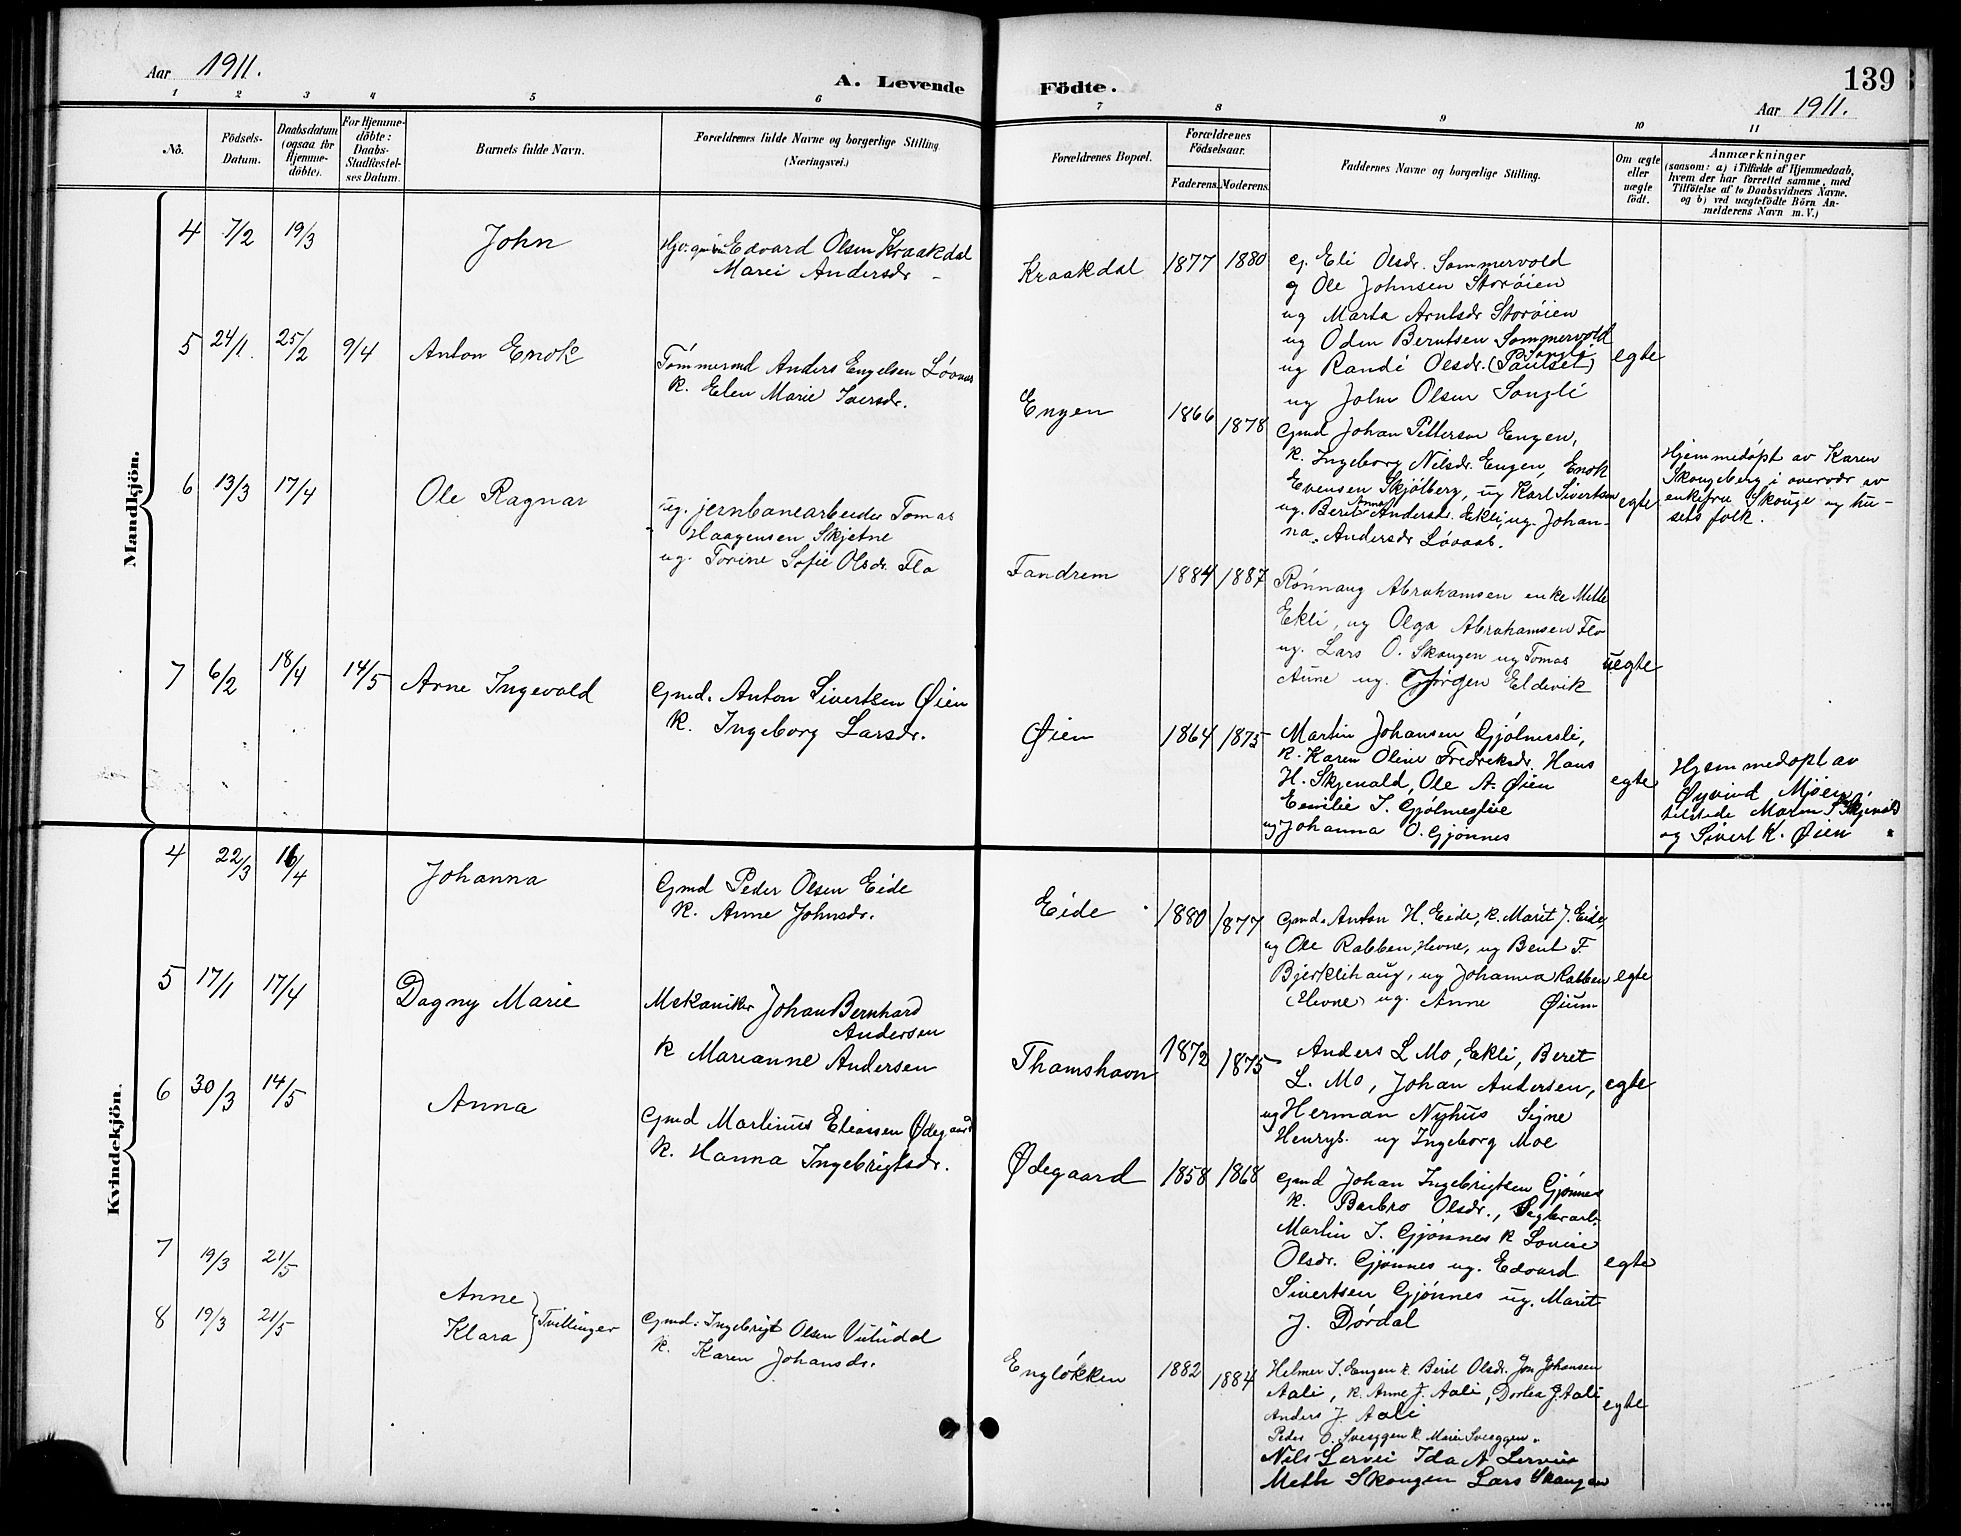 Aar 1911.
A. Levende
Födte.
139
Aar 1911.
1 2 3 4 5 6 7 8 9 10 11
No.
Födsels-
Datum.
Daabsdatum
(ogsaa for
Hjemme-
döbte).
For Hjemme-
döbte:
Daabs-
Stadfæstel-
ses Datum.
Barnets fulde Navn.
Forældrenes fulde Navne og borgerlige Stilling
(Næringsvei.)
Forældrenes Bopæl.
Forældrenes
Födselsaar.
Faderens. Moderens.
Faddernes Navne og borgerlige Stilling.
Om ægte
eller
uægte
födt.
Anmærkninger
(saasom: a) i Tilfælde af Hjemmedaab,
hvem der har forrettet samme, med
Tilföielse af to Daabsvidners Navne.
og b) ved uægtefödte Börn An-
melderens Navn m. V.)
Mandkjön.
4 7/2 19/3 John
Edvard Olsen Kraakdal
Marei Andersdr.
Kraakdal 1877 1880
g. Eli Olsdr. Sommervold
g Ole Johnsen Storøien
ug Marta Arntsdr Storøien
ug Oden Berntsen Sommervold
ug Randi Olsdr. (Paulset) Songli
ug John Olsen Songli
egte
5 24/1. 25/2 9/4 Anton Enok
Tømmermd Anders Engelsen Løvaas
k. Elen Marie Iversdr.
Engen 1866 1878
Gmd Johan Petterson Engen,
k. Ingeborg Nilsdr. Engen, Enok
Evensen Skjølberg, ug Karl Sivertsen
ug. Berit Anne Andersdr. Ekli, ug. Johan-
na Andersdr Løvaas.
egte
Hjemmedøpt av Karen
Skongeberg i overvær av
enkefru Skouge og hu-
sets folk.
6 13/3 17/4 Ole Ragnar
ug. jernbanearbeider Tomas
Haagensen Skjetne
ug. Torine Sofie Olsdr. Flo
Fandrem 1884 1887
Rønnaug Abrahamsen enke Mette
Ekli, ug Olga Abrahamsen Flo
ug. Lars O. Skongen ug Tomas
Aune ug. Jørgen Eldevik
uegte
7 6/2 18/4 14/5 Arne Ingevald
Gmd. Anton Sivertsen Øien
k. Ingeborg Larsdr.
Øien 1864 1875
Martin Johansen Gjølmesli,
k. Karen Oline Fredriksdr. Hans
H. Skjenald, Ole A. Øien
Emilie J. Gjølmeslie
ug Johanna O. Gjønnes
egte
Hjemmedøpt av
Øyvind Mjøen
tilstede Maren S Skjenald
og Sivert K. Øien
Kvindekjön.
4 22/3 16/4 Johanna
Gmd Peder Olsen Eide
k. Anne Johnsdr.
Eide 1880 1877
Gmd. Anton H. Eide, k. Marit J. Eide,
ug Ole Rabben, Hevne, ug Bent F.
Bjerklihaug, ug Johanna Rabben
(Hevne) ug. Anne Øium
egte
5 17/1 17/4 Dagny Marie
Mekaniker Johan Bernhard
Andersen
k Marianne Andersen
Thamshavn 1872 1875
Anders L Mo, Ekli, Beret
L. Mo, Johan Andersen,
ug Herman Nyhus Signe
Henrys. ug Ingeborg Moe
egte
6 30/3 14/5 Anna
Gmd Martinus Eliassen Ødegaard
k. Hanna Ingebrigtsdr.
Ødegaard 1858 1868
Gmd Johan Ingebrigtsen Gjønnes
k. Barbro Olsdr.,
Martin I. Gjønnes k Lovise
Olsdr. Gjønnes ug. Edvard
Sivertsen Gjønnes ug. Marit
J. Dørdal
egte
7 19/3 21/5 Anne
8 19/3 21/5 Klara
Tvillinger
Gmd. Ingebrigt Olsen Vuludal
k. Karen Johansdr.
Engløkken 1882 1884
Helmer I. Engen k. Berit Olsdr. Jon Johansen
Aali, k. Anne J. Aali, Dortea J. Aali
Anders J. Aali
Peder O. Sveeggen k. Marie Sveeggen.
Nils Lervei Ida A Lervei
Mette Skongen Lars Skongen
egte